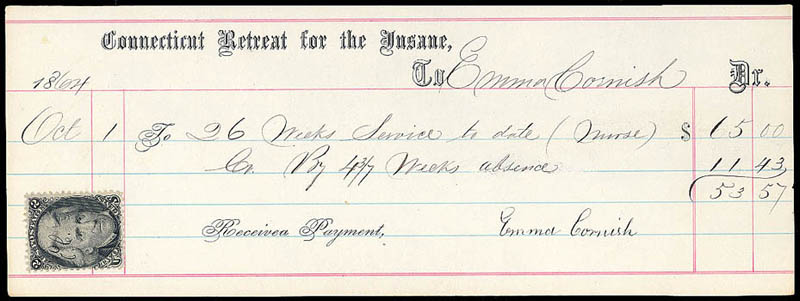 Connecticut Retreat for the Insane,
1864 To Emma Cornish Dr.
Oct 1 To 26 Weeks Service to date (Nurse) $ 65 00
Cr. By 4 4/7 Weeks absence 11 43
53 57
Received Payment, Emma Cornish